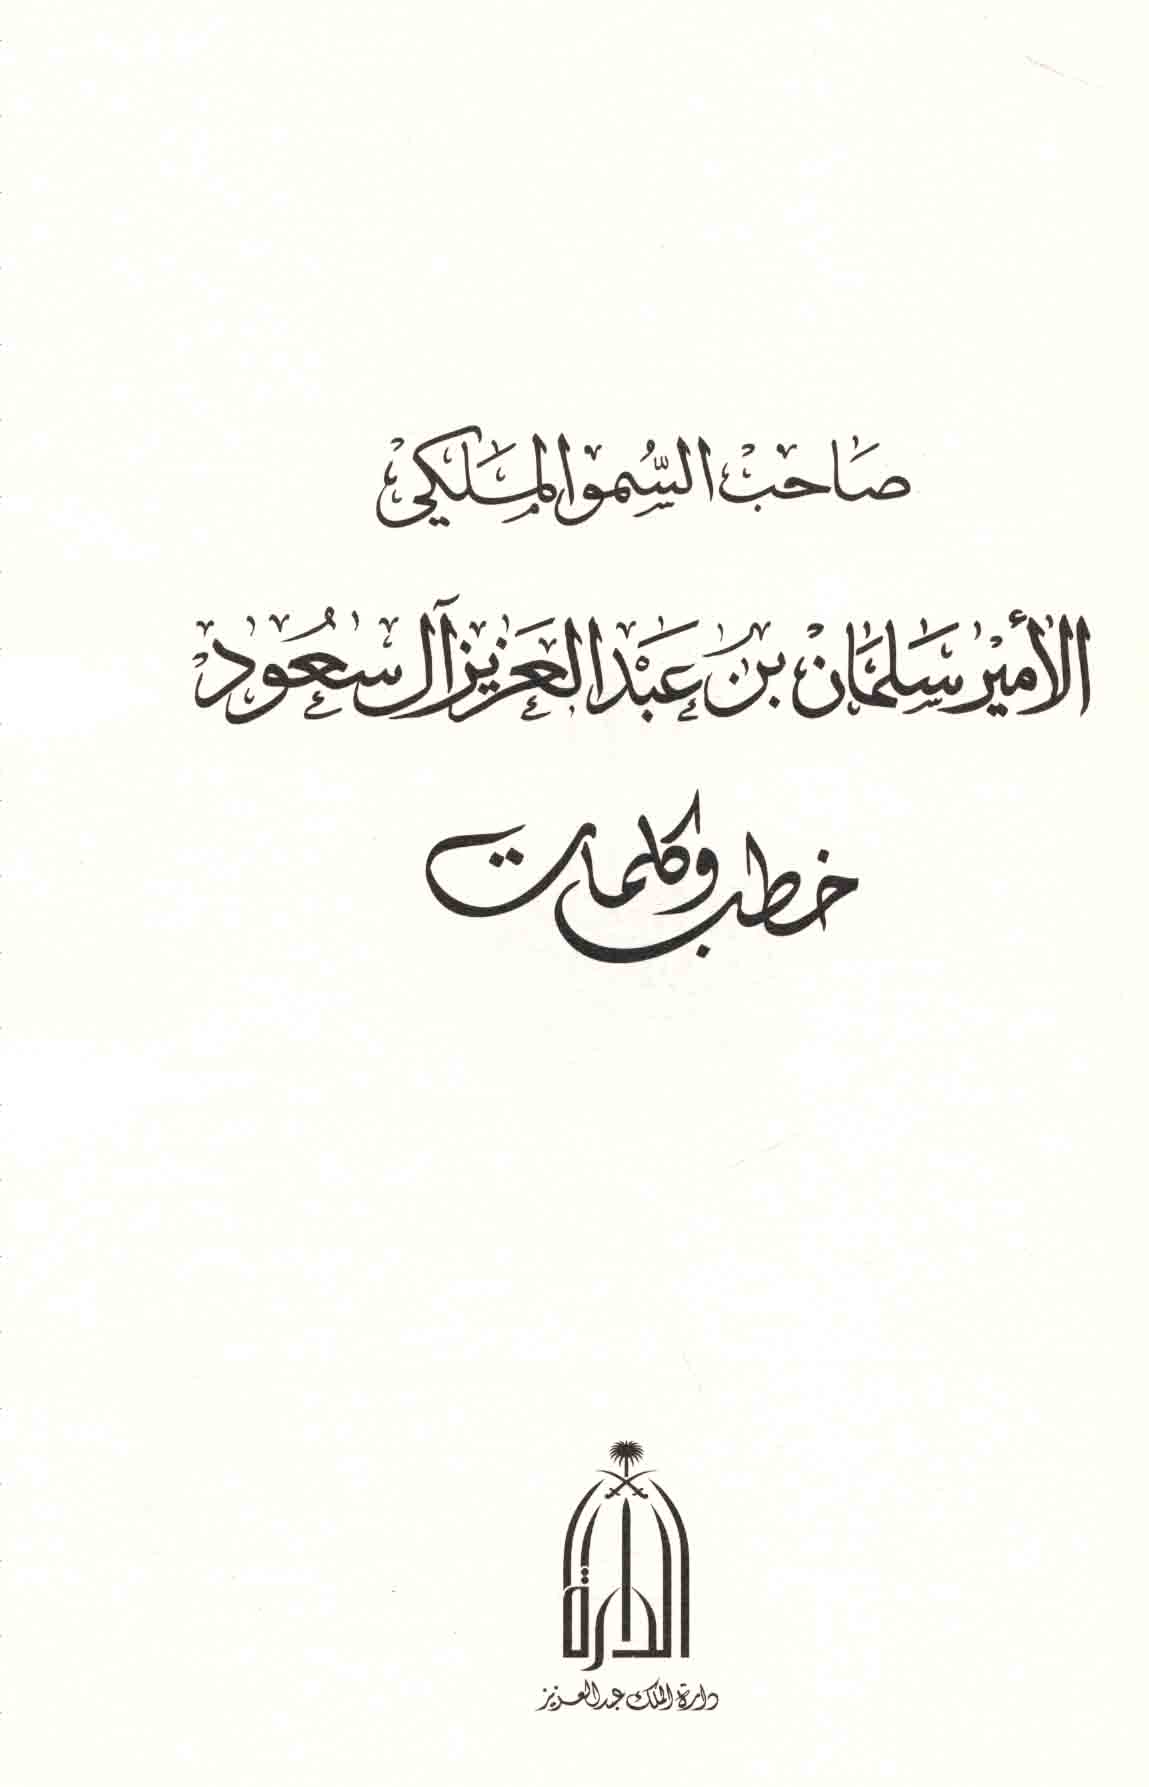 صاحب السمو الملكي
الأمير سلمان بن عبد العزيز آل سعود
خطب وكلمات
الدارة
دارة الملك عبد العزيز